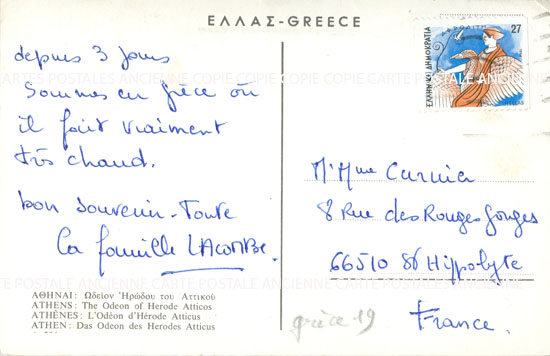 ΕΛΛΑΣ-GREECE
depuis 3 jours
Sommes en grèce où
il fait vraiment
très chaud.
bon souvenir - Toute
la famille LACOMBE.
ΑΘΗΝΑΙ: Ὠδεῖον Ἡρώδου του Αττικοῦ
ATHENS: The Odeon of Herode Atticos
ATHÈNES: L'Odéon d'Hérode Atticus
ATHEN: Das Odeon des Herodes Atticus
27
ΑΦΡΟΔΙΤΗ
ΕΛΛΗΝΙΚΗ ΔΗΜΟΚΡΑΤΙΑ
M. Mme Cunnier
8 Rue des Rouges Gorges
66510 St Hippolyte
France.
grèce 19
CARTE POSTALES ANCIENNE COPIE CARTE POSTALES ANCIENNE COPIE CARTE POSTALES ANCIENNE